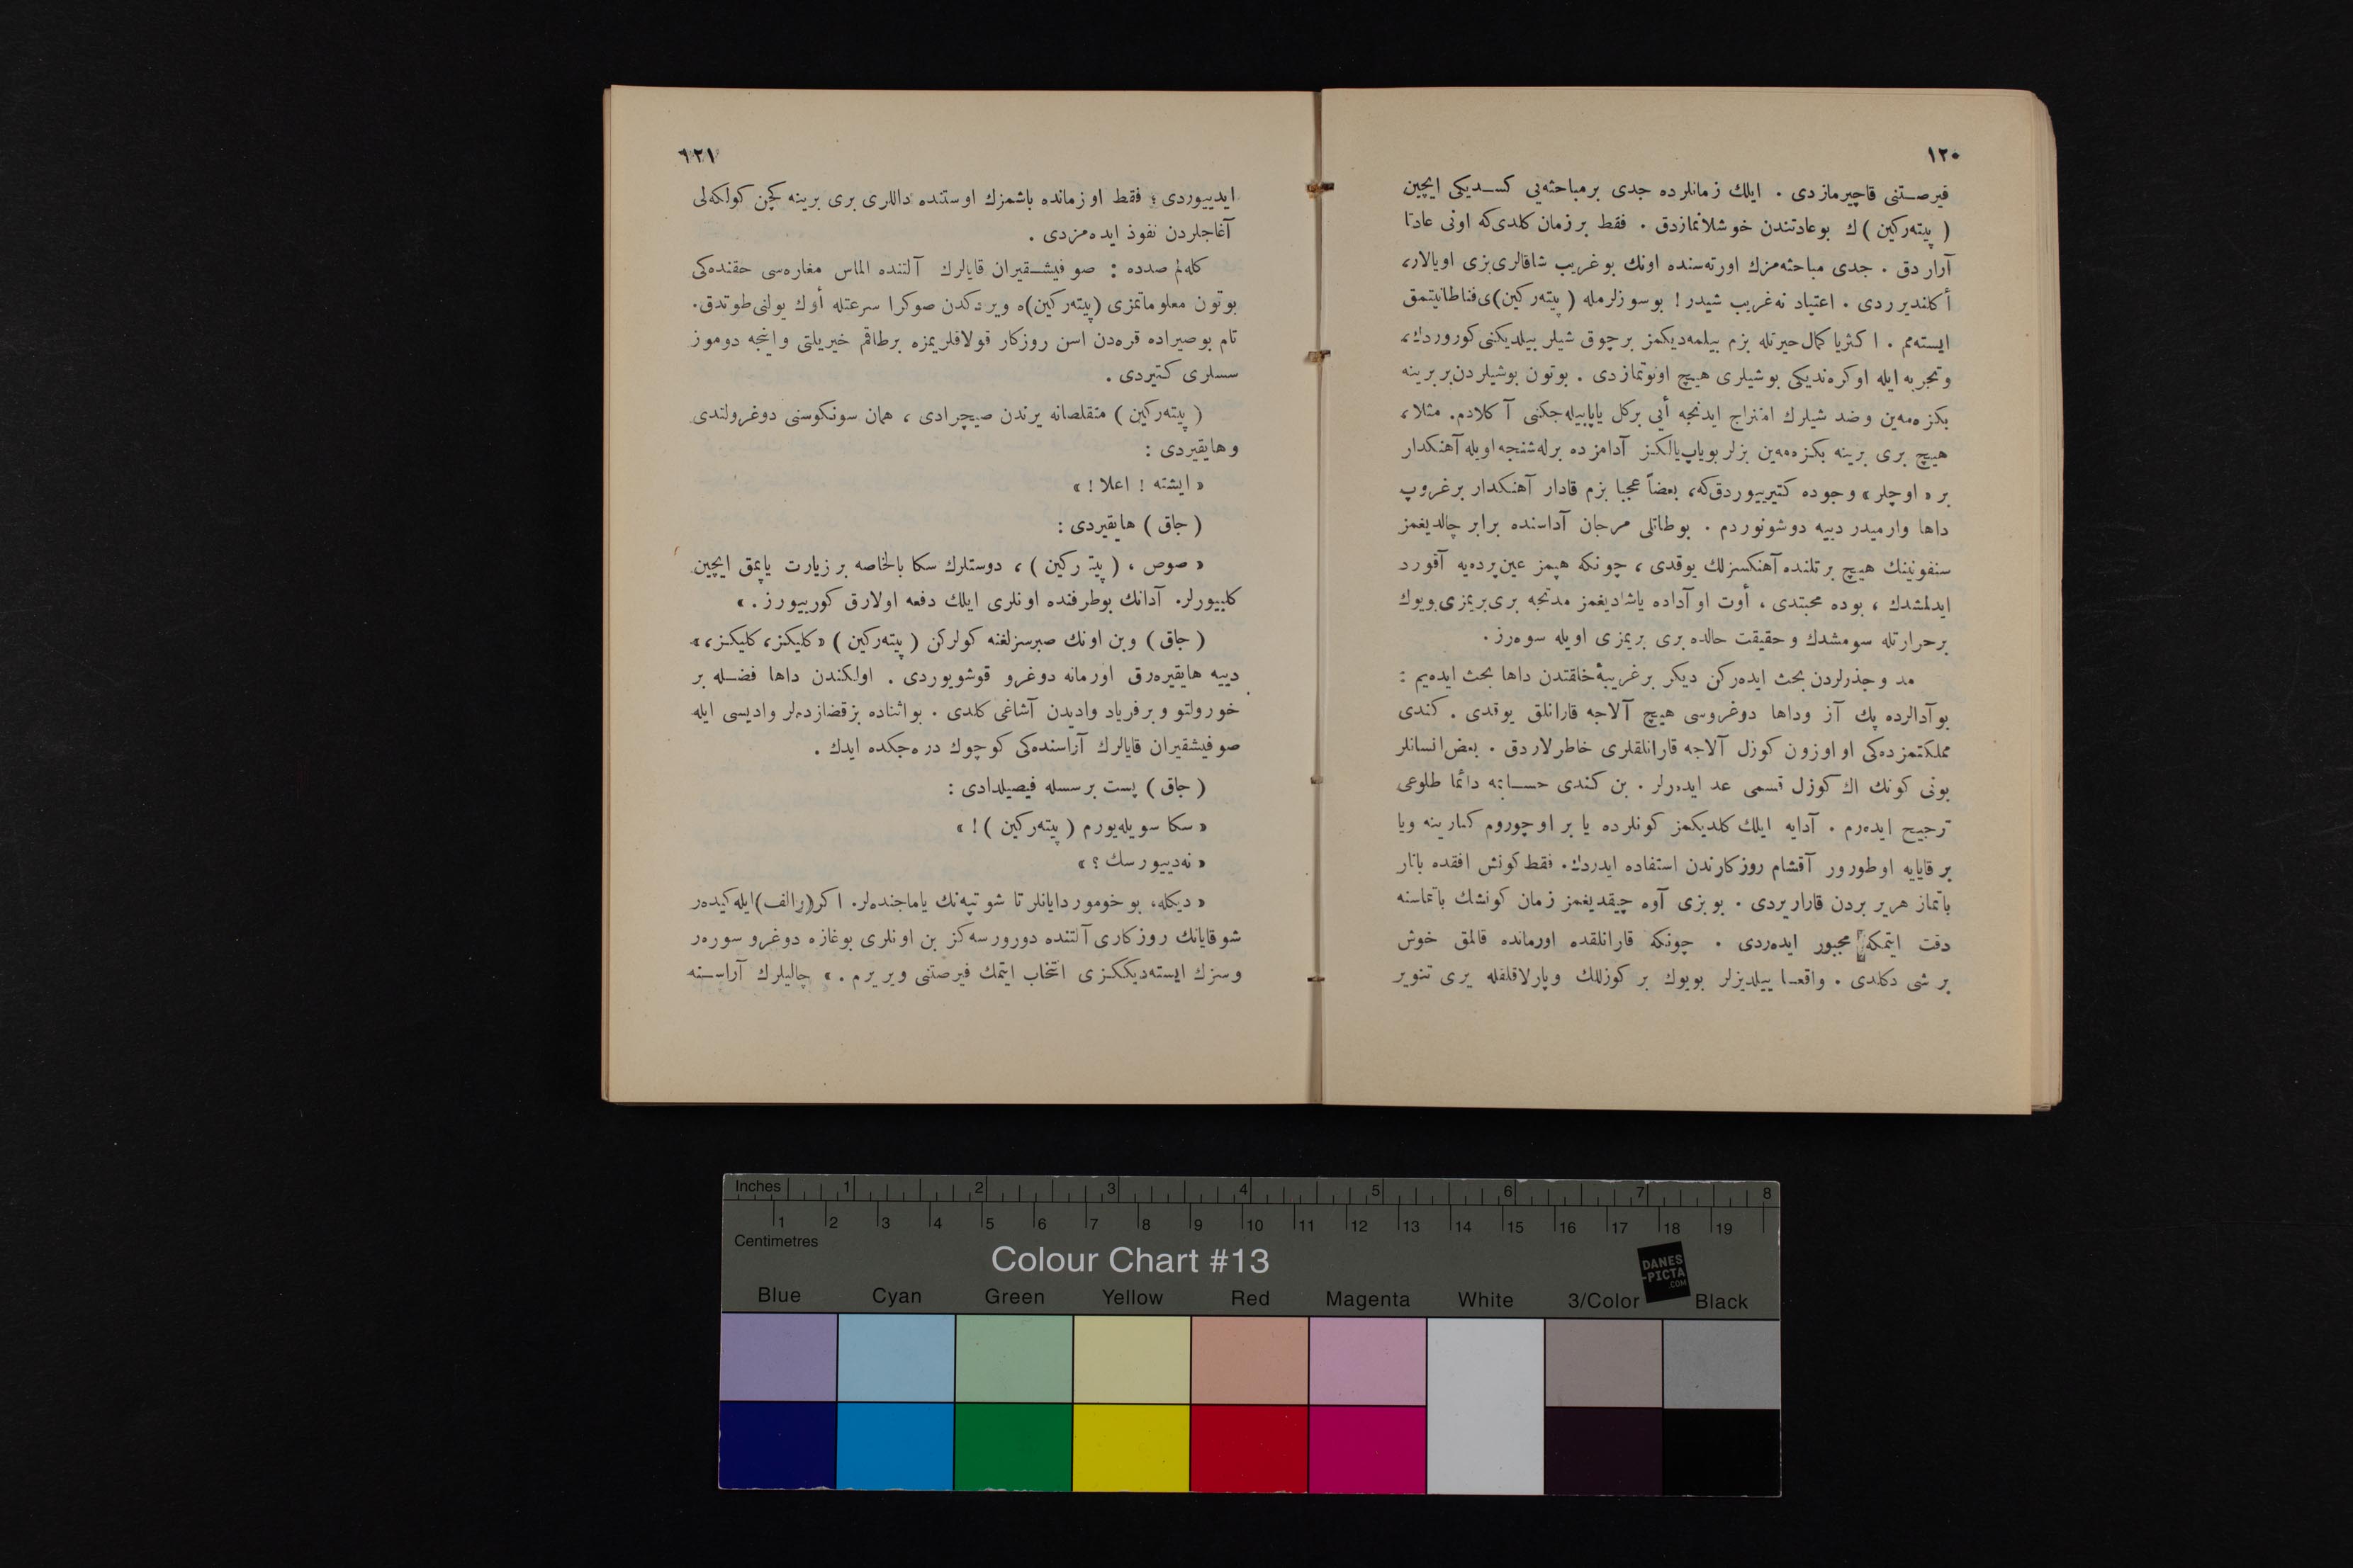 ١٢٠
فيرصتنى قاچيرمازدى . ايلك زمانلرده جدى بر مباحثه‌يى كسديكى ايچين
( پيته‌ركين ) ك بو عادتندن خوشلانمازدق . فقط بر زمان كلدى‌كه اونى عادتا
آرار دق . جدى مباحثه‌مزك اورته‌سنده اونك بو غريب شاقالرى بزى اويالار،
أكلنديرردى . اعتياد نه غريب شيدر ! بو سوزلرمله ( پيته‌ركين )ى فنا طانيتمق
ايسته‌مم . اكثريا كمال حيرتله بزم بيلمه‌ديكمز بر چوق شيلر بيلديكنى كوروردك،
وتجربه ايله اوكره‌نديكى بو شيلرى هيچ اونوتمازدى . بوتون بو شيلردن بر برينه
بكزه‌مه‌ين وضد شيلرك امتزاج ايدنجه أيى بركل ياپابيله‌جكنى آكلادم. مثلا،
هيچ برى برينه بكزه‌مه‌ين بزلر بو ياپ‌يالكز آدامزده برله‌شنجه اويله آهنكدار
بر « اوچلر » وجوده كتيرييوردق‌كه، بعضاً عجبا بزم قادار آهنكدار بر غروپ
داها وارميدر دييه دوشونوردم . بو طاتلى مرجان آداسنده برابر چالديغمز
سنفونينك هيچ بر تلنده آهنكسزلك يوقدى ، چونكه هپمز عين پرده‌يه آقورد
ايدلمشدك ، بوده محبتدى . أوت او آداده ياشاديغمز مدتجه برى بريمزى بويوك
بر حرارتله سومشدك وحقيقت حالده برى بريمزى اويله سوه‌رز .
مد و جذرلردن بحث ايده‌ركن ديكر بر غريبهٔ خلقتدن داها بحث ايده‌يم :
بو آدالرده پك آز وداها دوغروسى هيچ آلاجه قارانلق يوقدى . كندى
مملكتمزده‌كى او اوزون كوزل آلاجه قارانلقلرى خاطرلاردق . بعض انسانلر
بونى كونك اك كوزل قسمى عد ايده‌رلر . بن كندى حسابمه دائما طلوعى
ترجيح ايده‌رم . آدايه ايلك كلديكمز كونلرده يا بر اوچوروم كنارينه ويا
بر قايايه اوطورور آقشام روزكارندن استفاده ايدردك. فقط كونش افقده باتار
باتماز هر ير بردن قاراريردى . بو بزى آوه چيقديغمز زمان كونشك باتماسنه
دقت ايتمكه مجبور ايده‌ردى . چونكه قارانلقده اورمانده قالمق خوش
بر شى دكلدى . واقعا ييلديزلر بويوك بر كوزللك وپارلاقلقله يرى تنوير
١٢١
ايدييوردى ؛ فقط او زمانده باشمزك اوستنده داللرى برى برينه كچن كولكه‌لى
آغاجلردن نفوذ ايده‌مزدى .
كله‌لم صدده : صو فيشقيران قايالرك آلتنده الماس مغاره‌سى حقنده‌كى
بوتون معلوماتمزى (پيته‌ركين)ه ويردكدن صوكرا سرعتله أوك يولنى طوتدق.
تام بو صيراده قره‌دن اسن روزكار قولاقلريمزه برطاقم خيريلتى واينجه دوموز
سسلرى كتيردى .
( پيته‌ركين ) متقلصانه يرندن صيچرادى ، همان سونكوسنى دوغرولتدى
وهايقيردى :
« ايشته ! اعلا ! »
( جاق ) هايقيردى :
« صوص ، ( پيته‌ركين ) ، دوستلرك سكا بالخاصه بر زيارت ياپمق ايچين
كلييورلر. آدانك بو طرفنده اونلرى ايلك دفعه اولارق كورييورز . »
( جاق ) وبن اونك صبرسزلغنه كولركن ( پيته‌ركين ) « كليكز، كليكز، »
دييه هايقيره‌رق اورمانه دوغرو قوشويوردى . اولكندن داها فضله بر
خورولتو و بر فرياد واديدن آشاغى كلدى . بو اثناده بز قضازده‌لر واديسى ايله
صو فيشقيران قايالرك آراسنده‌كى كوچوك دره‌جكده ايدك .
( جاق ) پست بر سسله فيصيلدادى :
« سكا سويله‌يورم ( پيته‌ركين ) ! »
« نه دييورسك ؟ »
« ديكله، بو خوموردايانلر تا شو تپه‌نك ياماجنده‌لر. اكر (رالف) ايله كيده‌ر
شو قايانك روزكارى آلتنده دورورسه‌كز بن اونلرى بوغازه دوغرو سوره‌ر
وسزك ايسته‌ديككزى انتخاب ايتمك فيرصتنى ويريرم . » چاليلرك آراسنه
Inches 1 2 3 4 5 6 7 8
1 2 3 4 5 6 7 8 9 10 11 12 13 14 15 16 17 18 19
Centimetres
Colour Chart #13
DANES
-PICTA
.COM
Blue Cyan Green Yellow Red Magenta White 3/Color Black